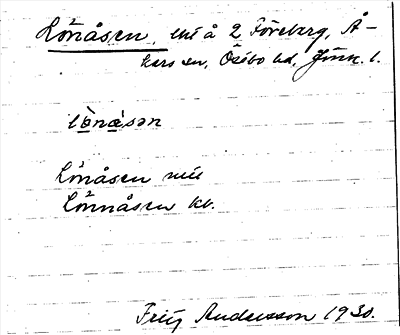 Lönåsen, thi å 2 Föreberg, Å-
kers sn, Östbo hd, Jönk. l.
lö̀nà̱sən
Lönåsen
Lönnåsen kt.
Fritz Andersson 1930.